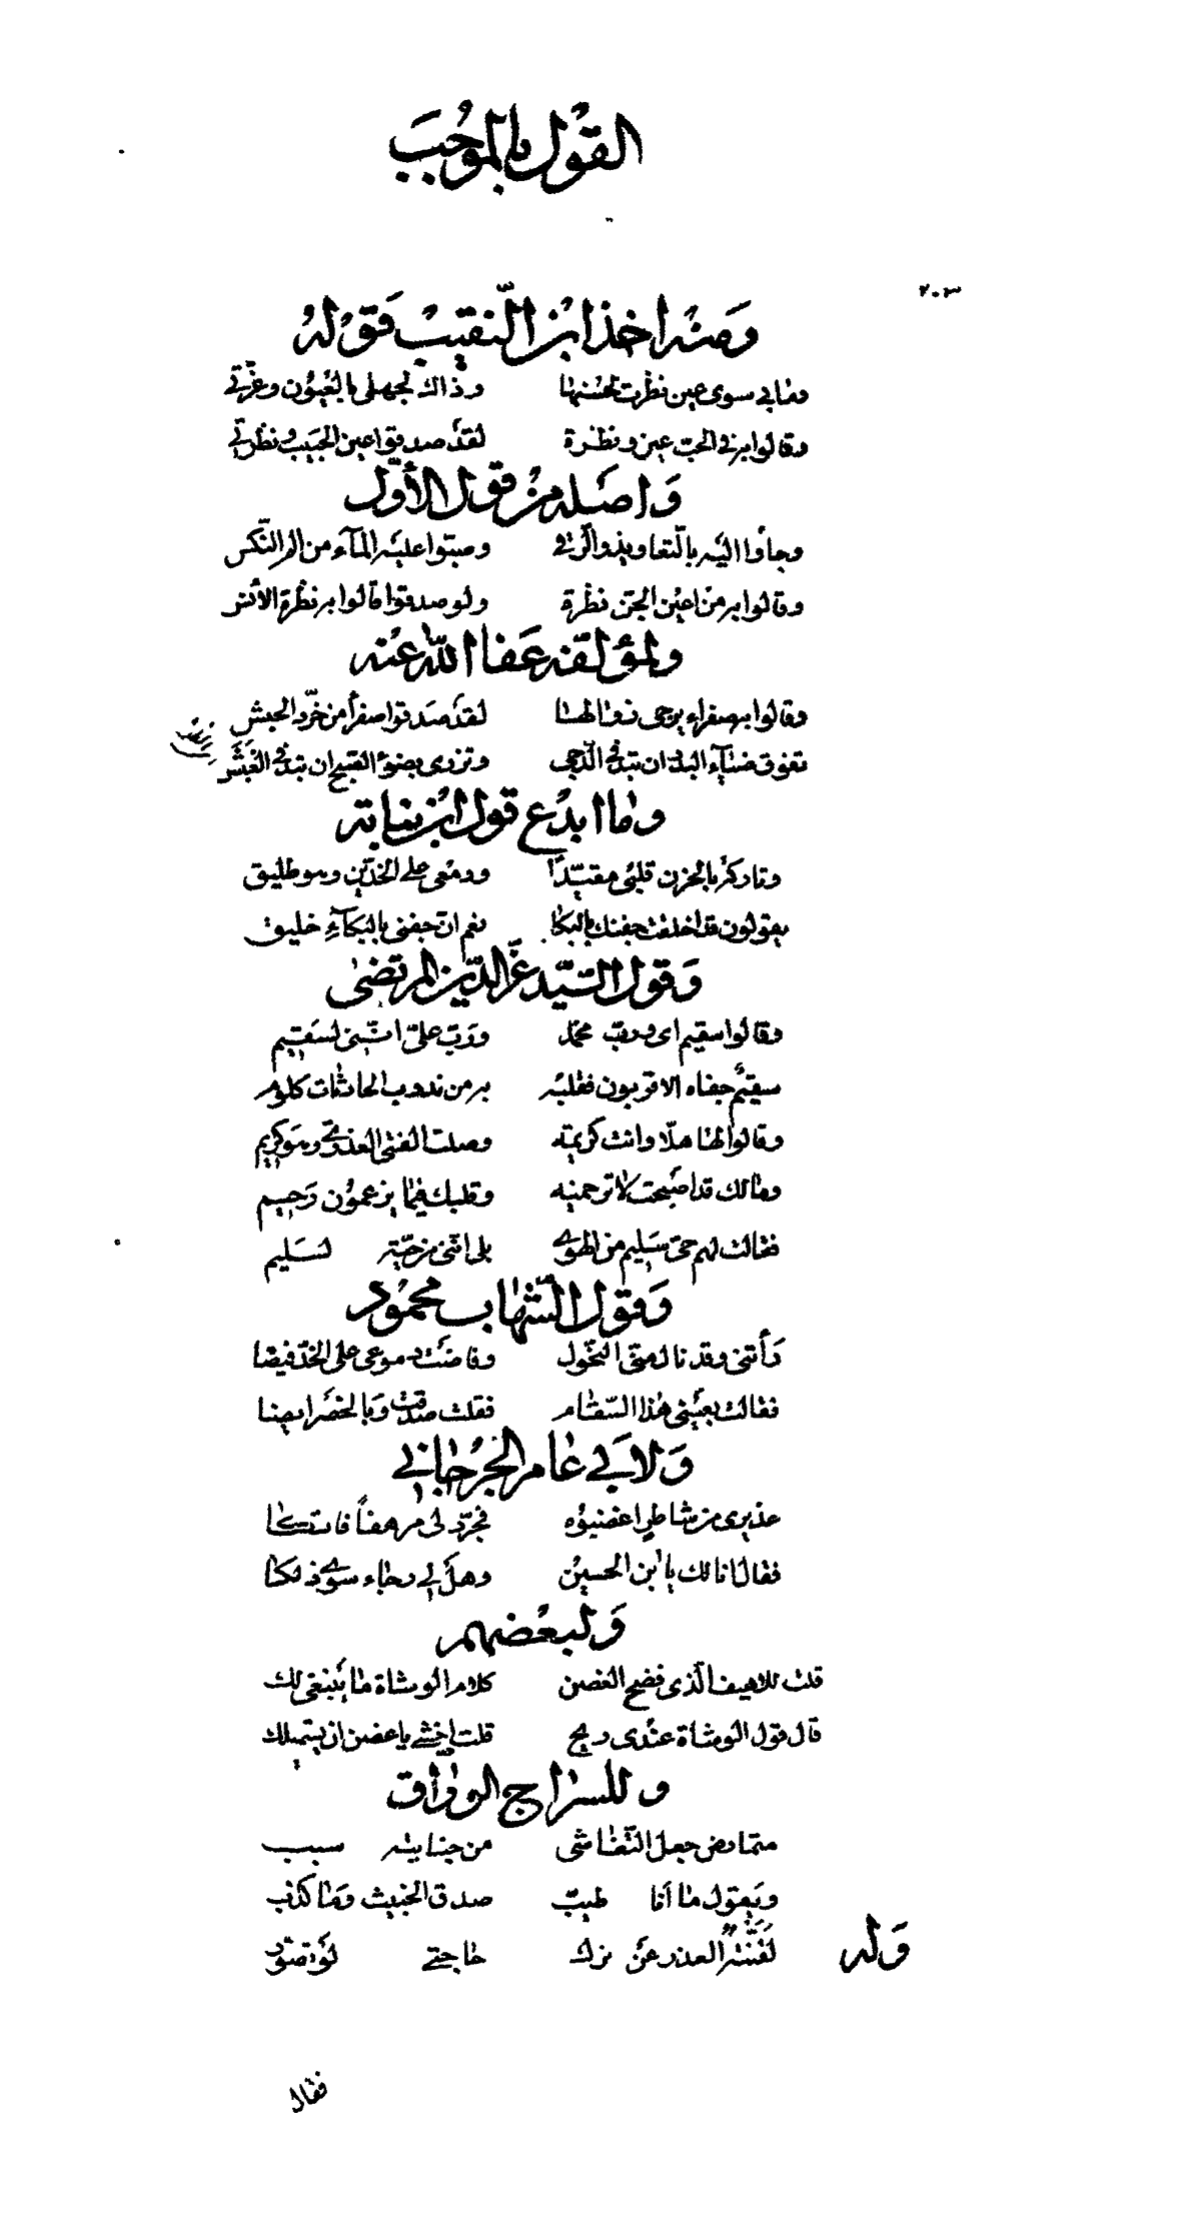 القول بالموجب
٢٠٣
ومنه اخذ ابن النقيب فقوله
وما بي سوى عين نظرت لحسنها وذاك لجهلي بالعيون وغرتي
وقالوا به في الحب عين ونظرة لقد صدقوا عين الحبيب ونظرتي
واصله من قول الأول
وجاؤا اليه بالتعاويذ والرقى وصبوا عليه المآء من الم النكس
وقالوا به من اعين الجن نظرة ولو صدقوا قالوا به نظرة الأنس
ولمؤلفه عفا الله عنه
وقالوا بهصفراء يرجى زوالها لقد صدقوا صفرا من خرد الحبش
تفوق ضيآء البدر ان تبد في الدجى وتزري بضوء الصبح ان تبد في الغبش
وما ابدع قول ابن نباتة
وتاركة بالحزن قلبي مقيدا ودمعي على الخدين وهو طليق
يقولون قد اخلقت جفنك بالبكا نعم ان جفني بالبكآء خليق
وقول السيد عز الدين المرتضى
وقالوا سقيم اي ورب محمد ورب علي انني لسقيم
سقيم جفاه الاقربون فقلبه به من ندوب الحادثات كلوم
وقالوا لها هلا وانت كريمة وصلت الفتى العذري وهو كريم
ومالك قد اصبحت لا ترحمينه وقلبك فيما يزعمون رحيم
فقالت لهم حق سليم من الهوى بلى انني من حبه لسليم
وقول الشهاب محمود
رأتني وقد نال مني النحول وفاضت دموعي على الخد فيضا
فقالت بعيني هذا السقام فقلت صدقت وبالخصر ايضا
ولابي عامر الجرجاني
عذيري من شاطر اغضبوه فجرد لي مرهفا فاتكا
فقال انا لك يا ابن الحسين وهل لي رجاء سوى ذلكا
ولبعضهم
قلت للاهيف الذي فضح الغصن كلام الوشاة ما ينبغي لك
قال قول الوشاة عندي ريح قلت اخشى يا غصن ان يستميلك
وللسراج الوراق
متمارض جعل التغاشي من جنايته سبب
ويقول ما انا طيب صدق الخبيث وما كذب
وله لقنته العذر عن ترك حاجتي لو تصور
فقال